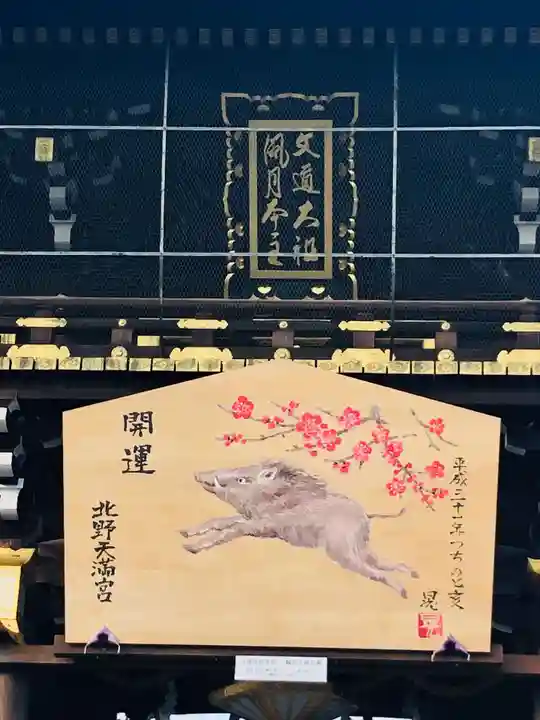 文道大祖
風月本主
開運
北野天満宮
平成三十一年つちのと亥
晃